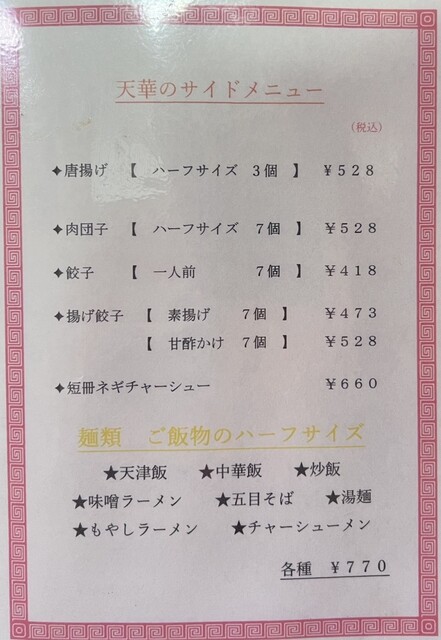 天華のサイドメニュー
(税込)
✦唐揚げ 【 ハーフサイズ 3個 】 ￥５２８
✦肉団子 【 ハーフサイズ ７個 】 ￥５２８
✦餃子 【 一人前 ７個 】 ￥４１８
✦揚げ餃子 【 素揚げ ７個 】 ￥４７３
【 甘酢かけ ７個 】 ￥５２８
✦短冊ネギチャーシュー ￥６６０
麺類 ご飯物のハーフサイズ
★天津飯 ★中華飯 ★炒飯
★味噌ラーメン ★五目そば ★湯麺
★もやしラーメン ★チャーシューメン
各種 ￥７７０